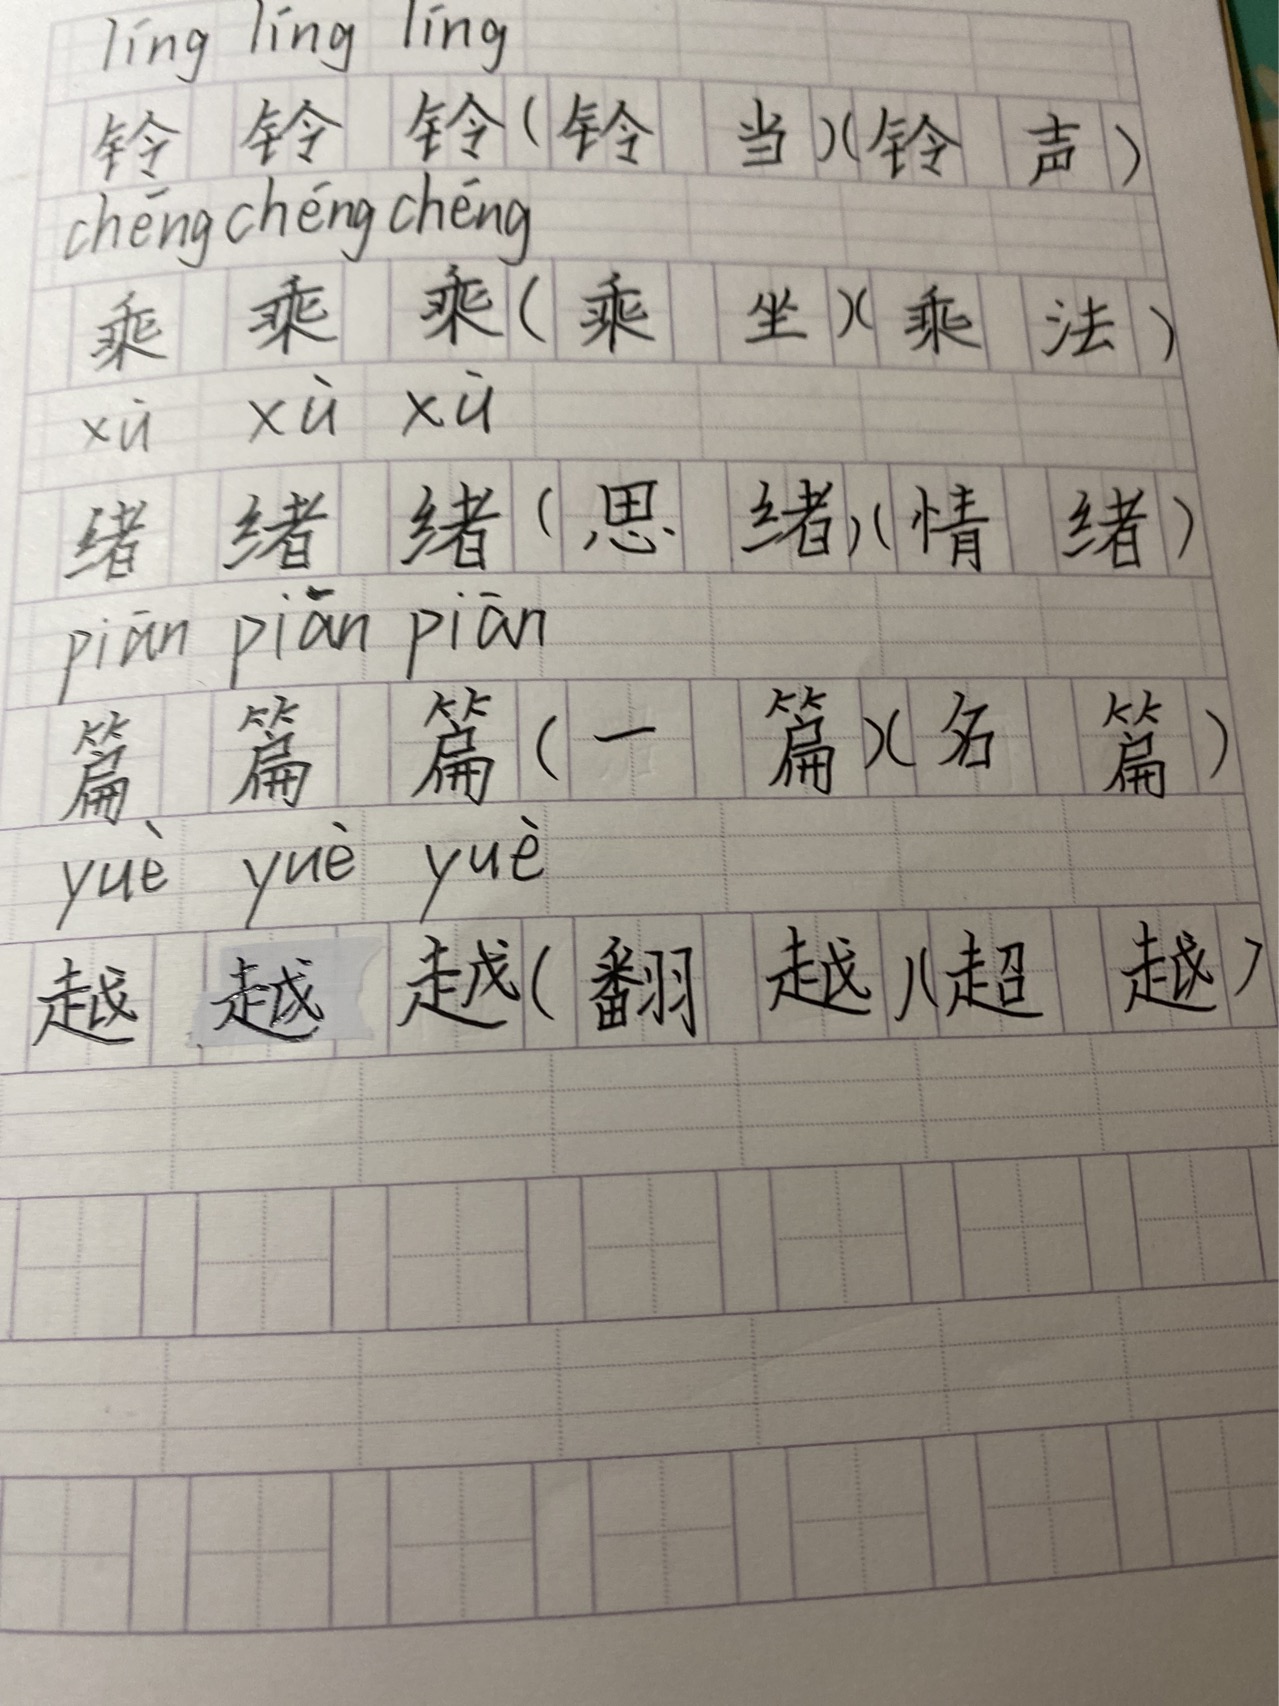 líng líng líng
铃 铃 铃(铃 当)(铃 声)
chéng chéng chéng
乘 乘 乘(乘 坐)(乘 法)
xù xù xù
绪 绪 绪(思 绪)(情 绪)
piān piān piān
篇 篇 篇(一 篇)(名 篇)
yuè yuè yuè
越 越 越(翻 越)(超 越)